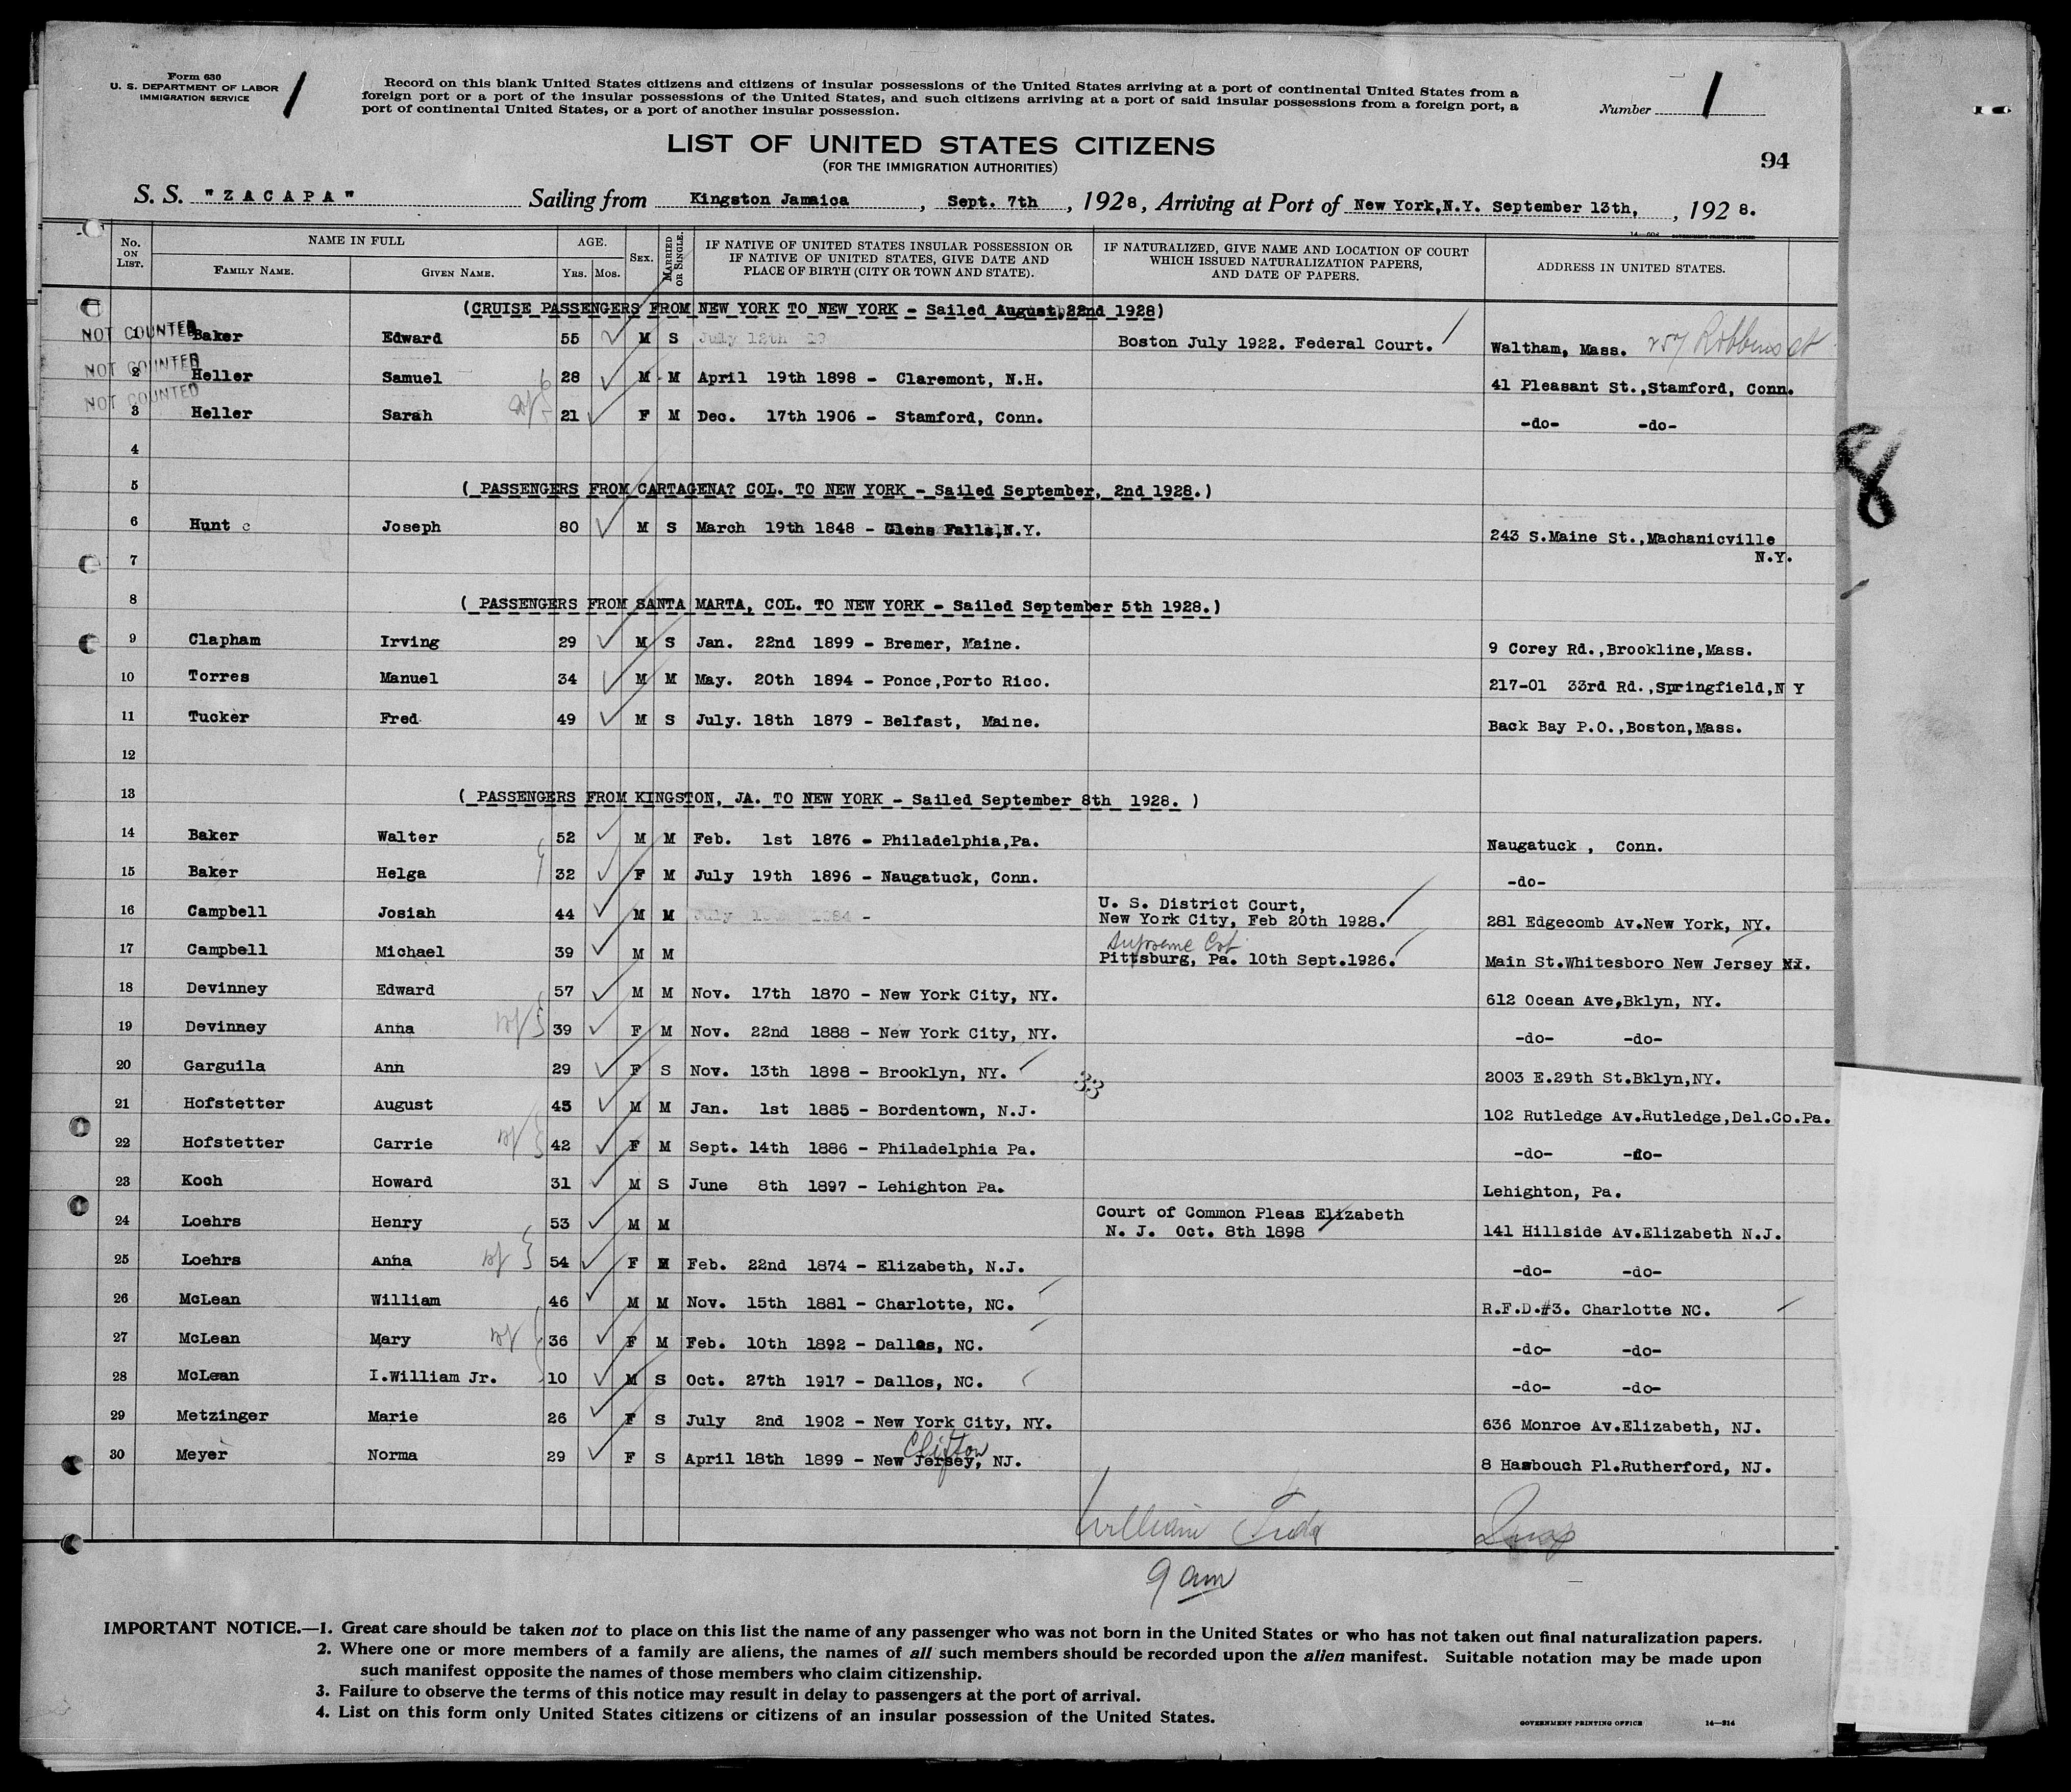 Form 630
U. S. DEPARTMENT OF LABOR
IMMIGRATION SERVICE
1
Record on this blank United States citizens and citizens of insular possessions of the United States arriving at a port of continental United States from a
foreign port or a port of the insular possessions of the United States, and such citizens arriving at a port of said insular possessions from a foreign port, a
port of continental United States, or a port of another insular possession.
Number 1
LIST OF UNITED STATES CITIZENS
(FOR THE IMMIGRATION AUTHORITIES)
94
S. S. "ZACAPA" Sailing from Kingston Jamaica, Sept. 7th, 1928, Arriving at Port of New York,N.Y. September 13th, , 1928.
No. ON LIST. NAME IN FULL FAMILY NAME. GIVEN NAME. AGE. YRS. MOS. SEX. MARRIED OR SINGLE. IF NATIVE OF UNITED STATES INSULAR POSSESSION OR IF NATIVE OF UNITED STATES, GIVE DATE AND PLACE OF BIRTH (CITY OR TOWN AND STATE). IF NATURALIZED, GIVE NAME AND LOCATION OF COURT WHICH ISSUED NATURALIZATION PAPERS, AND DATE OF PAPERS. ADDRESS IN UNITED STATES.
(CRUISE PASSENGERS FROM NEW YORK TO NEW YORK - Sailed August,22nd 1928)
NOT COUNTED 1 Baker Edward 55 M S July 12th 19 Boston July 1922. Federal Court. Waltham, Mass. 257 Robbins st
NOT COUNTED 2 Heller Samuel 28 M M April 19th 1898 - Claremont, N.H. 41 Pleasant St.,Stamford, Conn.
NOT COUNTED 3 Heller Sarah 21 F M Dec. 17th 1906 - Stamford, Conn. -do- -do-
4
5 ( PASSENGERS FROM CARTAGENA? COL. TO NEW YORK - Sailed September, 2nd 1928.)
6 Hunt c Joseph 80 M S March 19th 1848 - Glens Falls,N.Y. 243 S.Maine St.,Machanicville
7 N.Y.
8 ( PASSENGERS FROM SANTA MARTA, COL. TO NEW YORK - Sailed September 5th 1928.)
9 Clapham Irving 29 M S Jan. 22nd 1899 - Bremer, Maine. 9 Corey Rd.,Brookline,Mass.
10 Torres Manuel 34 M M May. 20th 1894 - Ponce,Porto Rico. 217-01 33rd Rd.,Springfield,N Y
11 Tucker Fred 49 M S July. 18th 1879 - Belfast, Maine. Back Bay P.O.,Boston,Mass.
12
13 ( PASSENGERS FROM KINGSTON, JA. TO NEW YORK - Sailed September 8th 1928. )
14 Baker Walter 52 M M Feb. 1st 1876 - Philadelphia,Pa. Naugatuck , Conn.
15 Baker Helga 32 F M July 19th 1896 - Naugatuck, Conn. -do-
16 Campbell Josiah 44 M M July 1884 - U. S. District Court, New York City, Feb 20th 1928. 281 Edgecomb Av.New York, NY.
17 Campbell Michael 39 M M Supreme Crt Pittsburg, Pa. 10th Sept.1926. Main St.Whitesboro New Jersey
18 Devinney Edward 57 M M Nov. 17th 1870 - New York City, NY. 612 Ocean Ave,Bklyn, NY.
19 Devinney Anna 39 F M Nov. 22nd 1888 - New York City, NY. -do- -do-
20 Garguila Ann 29 F S Nov. 13th 1898 - Brooklyn, NY. 33 2003 E.29th St.Bklyn,NY.
21 Hofstetter August 43 M M Jan. 1st 1885 - Bordentown, N.J. 102 Rutledge Av.Rutledge,Del.Co.Pa.
22 Hofstetter Carrie 42 F M Sept. 14th 1886 - Philadelphia Pa. -do- -do-
23 Koch Howard 31 M S June 8th 1897 - Lehighton Pa. Lehighton, Pa.
24 Loehrs Henry 53 M M Court of Common Pleas Elizabeth N. J. Oct. 8th 1898 141 Hillside Av.Elizabeth N.J.
25 Loehrs Anna 54 F M Feb. 22nd 1874 - Elizabeth, N.J. -do- -do-
26 McLean William 46 M M Nov. 15th 1881 - Charlotte, NC. R.F.D.#3. Charlotte NC.
27 McLean Mary 36 F M Feb. 10th 1892 - Dallas, NC. -do- -do-
28 McLean I.William Jr. 10 M S Oct. 27th 1917 - Dallos, NC. -do- -do-
29 Metzinger Marie 26 F S July 2nd 1902 - New York City, NY. 636 Monroe Av.Elizabeth, NJ.
30 Meyer Norma 29 F S April 18th 1899 - New Jersey, NJ. Clifton 8 Hasbouch Pl.Rutherford, NJ.
William
9 am
8
IMPORTANT NOTICE.—1. Great care should be taken not to place on this list the name of any passenger who was not born in the United States or who has not taken out final naturalization papers.
2. Where one or more members of a family are aliens, the names of all such members should be recorded upon the alien manifest. Suitable notation may be made upon
such manifest opposite the names of those members who claim citizenship.
3. Failure to observe the terms of this notice may result in delay to passengers at the port of arrival.
4. List on this form only United States citizens or citizens of an insular possession of the United States.
GOVERNMENT PRINTING OFFICE 14—314